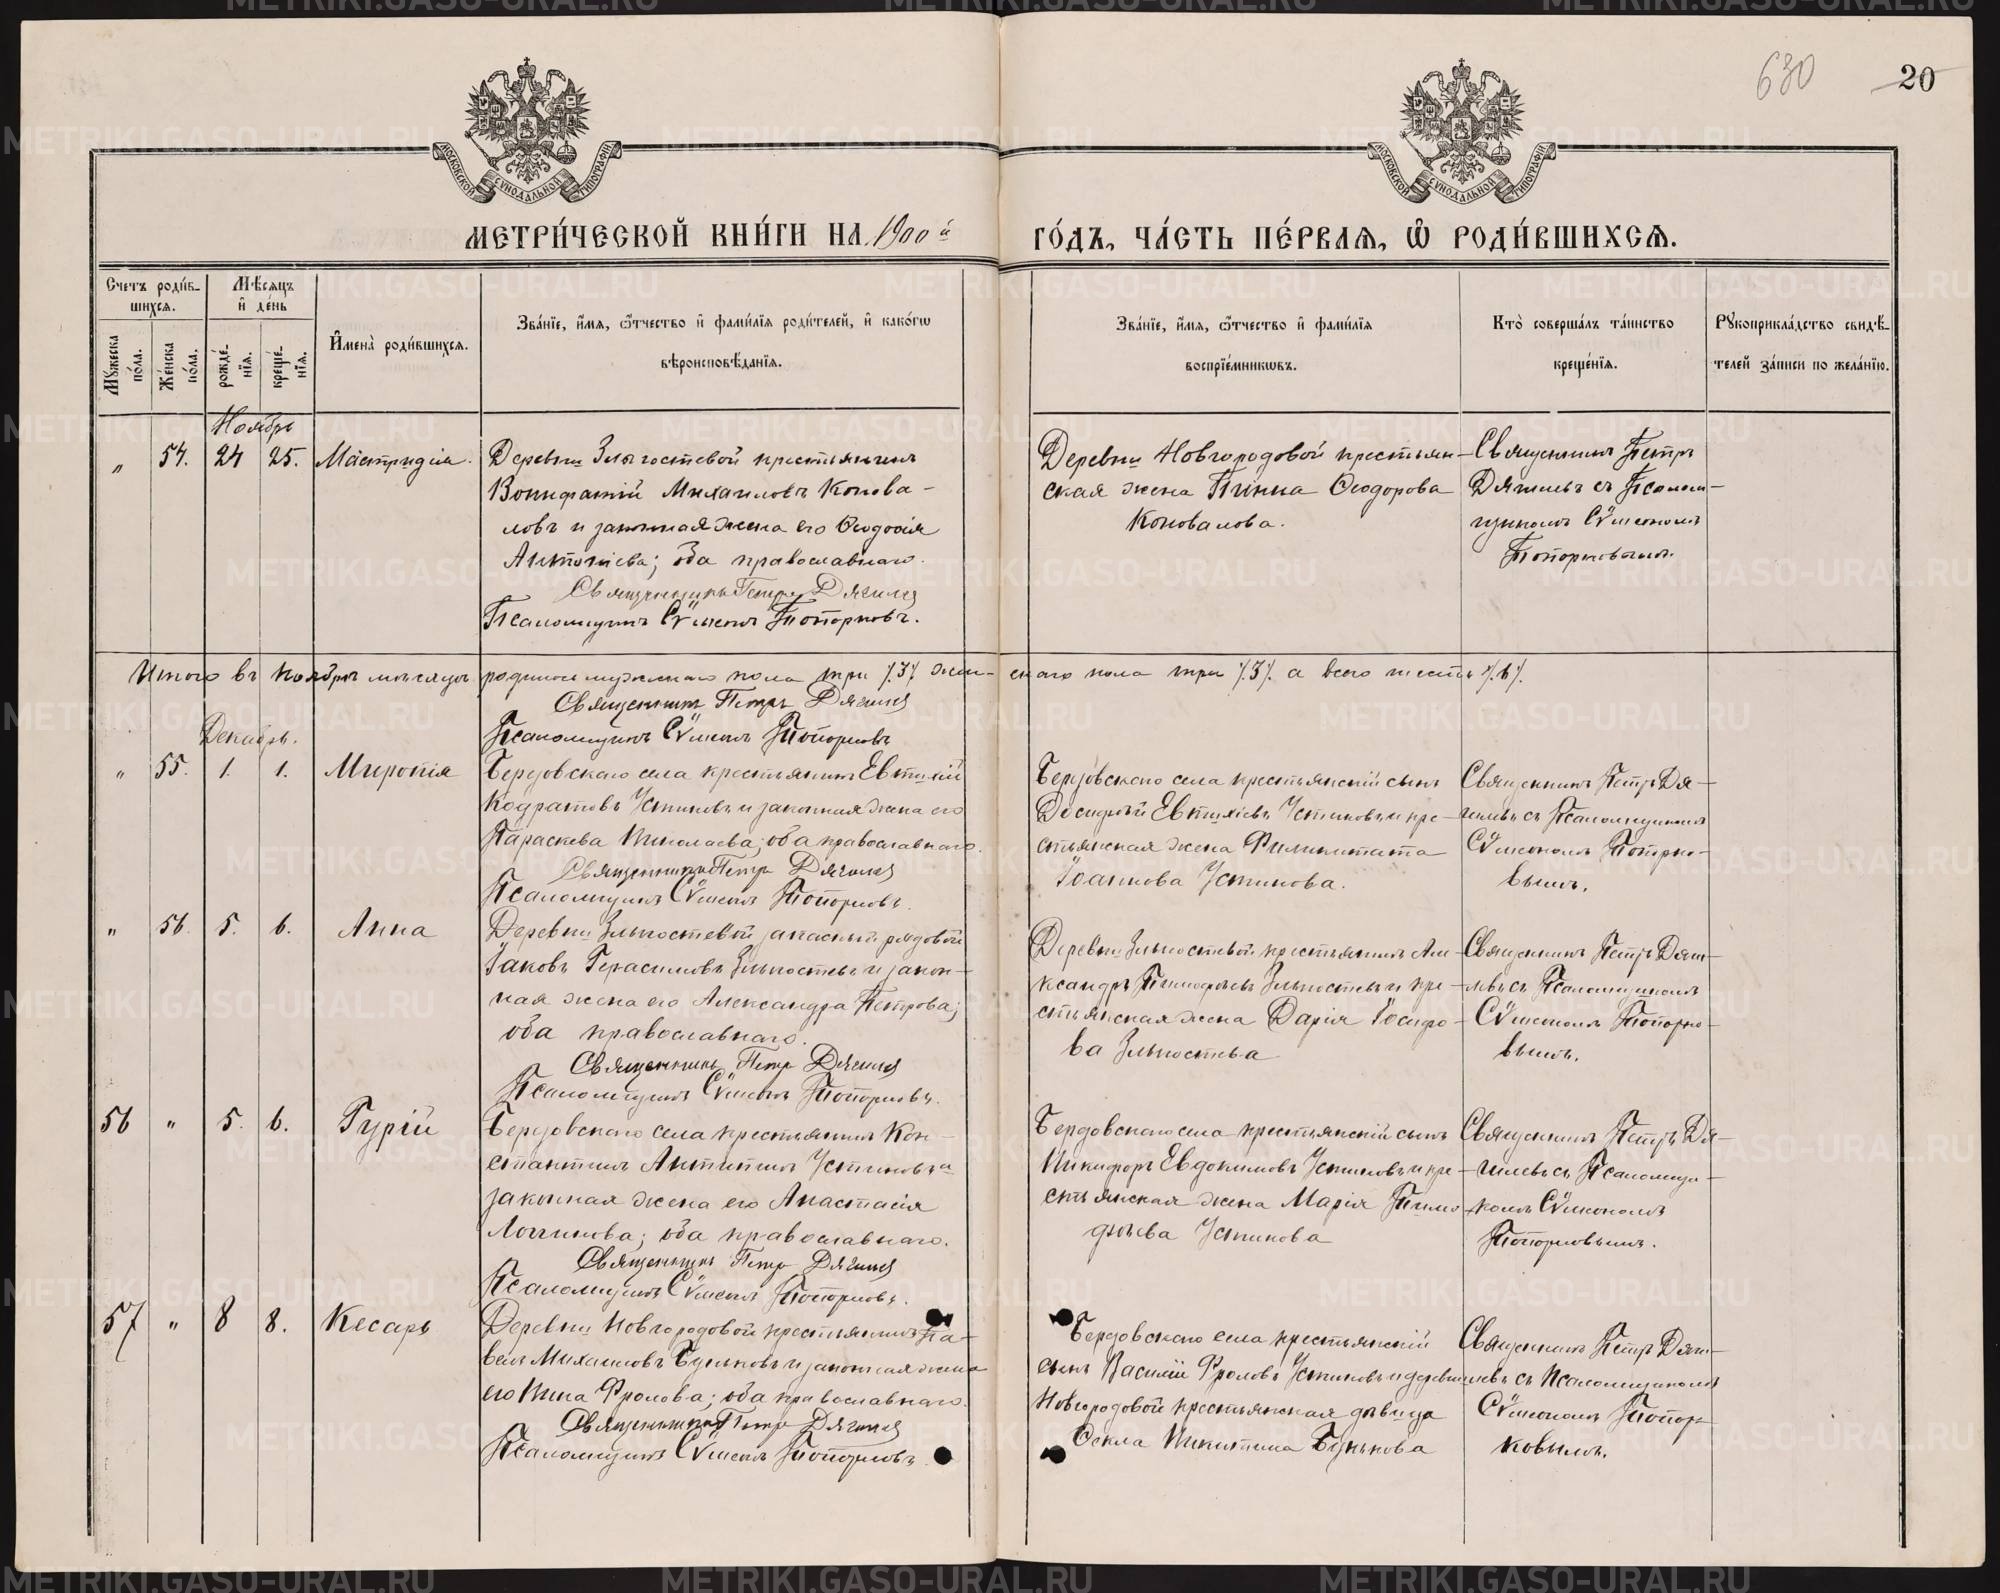 630
20
МОСКОВСКОЙ СѴНОДАЛЬНОЙ ТИПОГРАФІИ
МОСКОВСКОЙ СѴНОДАЛЬНОЙ ТИПОГРАФІИ
МЕТРИ́ЧЕСКОЙ КНИ́ГИ НА 1900й ГО́ДЪ, ЧА́СТЬ ПЕ́РВАЯ, Ѡ РОДИ́ВШИХСЯ.
Счетъ роди́в-
шихся.
Мѣсяцъ
и де́нь
Мꙋжеска
по́ла.
Же́нска
по́ла.
рожде́-
нїя.
креще́-
нїя.
И́мена̀ роди́вшихся.
Зва́нїе, и́мя, ѻ́тчество и фами́лїя роди́телей, и како́гѡ
вѣроисповѣ́данїя.
Зва́нїе, и́мя, ѻ́тчество и фами́лїя
воспрїе́мникѡвъ.
Кто̀ соверша́лъ та́инство
креще́нїя.
Рꙋкоприкла́дство свидѣ́-
телей за́писи по жела́нїю.
Ноябрь
" 54. 24 25. Мастридія.
Деревни крестьянинъ
Вонифатій Михаиловъ Конова-
ловъ и законная жена его Ѳеодосія
Антонієва; оба православнаго.
Священникъ Петръ Дягилевъ
Псаломщикъ Сѵмеонъ Топорковъ.
Деревни Новгородовой крестьян-
ская жена Пинна Ѳеодорова
Коновалова.
Священникъ Петръ
Дягилевъ съ Псалом-
щикомъ Сѵмеономъ
Топорковымъ.
Итого въ Ноябрѣ мѣсяцѣ родилось мужескаго пола три /3/ жен-скаго пола три /3/. а всего шесть /6/.
Священникъ Петръ Дягилевъ
Псаломщикъ Сѵмеонъ Топорковъ
Декабрь.
" 55. 1. 1. Миропія
Бердовскаго села крестьянинъ Евтихій
Кодратовъ Устиновъ и законная жена его
Параскева Николаева; оба православнаго.
Священникъ Петръ Дягилевъ
Псаломщикъ Сѵмеонъ Топорковъ.
Бердовскаго села крестьянскій сынъ
Досифей Евтихіевъ Устиновъ и кре-
стьянская жена Филицитата
Іоаннова Устинова.
Священникъ Петръ Дя-
гилевъ съ Псаломщикомъ
Сѵмеономъ Топорко-
вымъ.
" 56. 5. 6. Анна
Деревни запасный рядовой
Іаковъ Герасимовъ и закон-
ная жена его Александра Петрова;
оба православнаго.
Священникъ Петръ Дягилевъ
Псаломщикъ Сѵмеонъ Топорковъ.
Деревни крестьянинъ Але-
ксандръ Тимофеевъ и кре-
стьянская жена Дарія Іосифо-
ва
Священникъ Петръ Дяги-
левъ съ Псаломщикомъ
Сѵмеономъ Топорко-
вымъ.
56 " 5. 6. Гурій
Бердовскаго села крестьянинъ Кон-
стантинъ Антипинъ Устиновъ и
законная жена его Анастасія
Логгинова; оба православнаго.
Священникъ Петръ Дягилевъ
Псаломщикъ Сѵмеонъ Топорковъ.
Бердовскаго села крестьянскій сынъ
Никифоръ Евдокимовъ Устиновъ и кре-
стьянская жена Марія Тимо-
феева Устинова
Священникъ Петръ Дя-
гилевъ съ Псаломщи-
комъ Сѵмеономъ
Топорковымъ.
57 " 8 8. Кесарь
Деревни Новгородовой крестьянинъ Па-
велъ Михаиловъ Буньковъ и законная жена
его Нина Фролова; оба православнаго.
Священникъ Петръ Дягилевъ
Псаломщикъ Сѵмеонъ Топорковъ
Бердовскаго села крестьянскій
сынъ Василій Фроловъ Устиновъ и деревни
Новгородовой крестьянская дѣвица
Ѳекла Никитина Бунькова
Священникъ Петръ Дяги-
левъ съ Псаломщикомъ
Сѵмеономъ Топор-
ковымъ.
METRIKI.GASO-URAL.RU